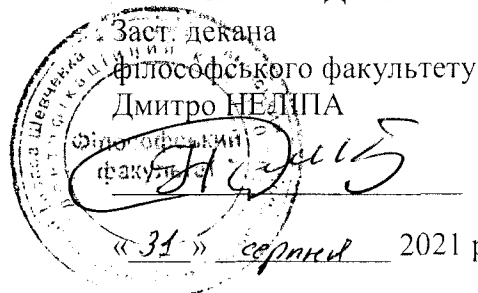 Заст. декана
філософського факультету
Дмитро НЕЛІПА
Шевченка
Філософський
факультет
«31» серпня 2021 р